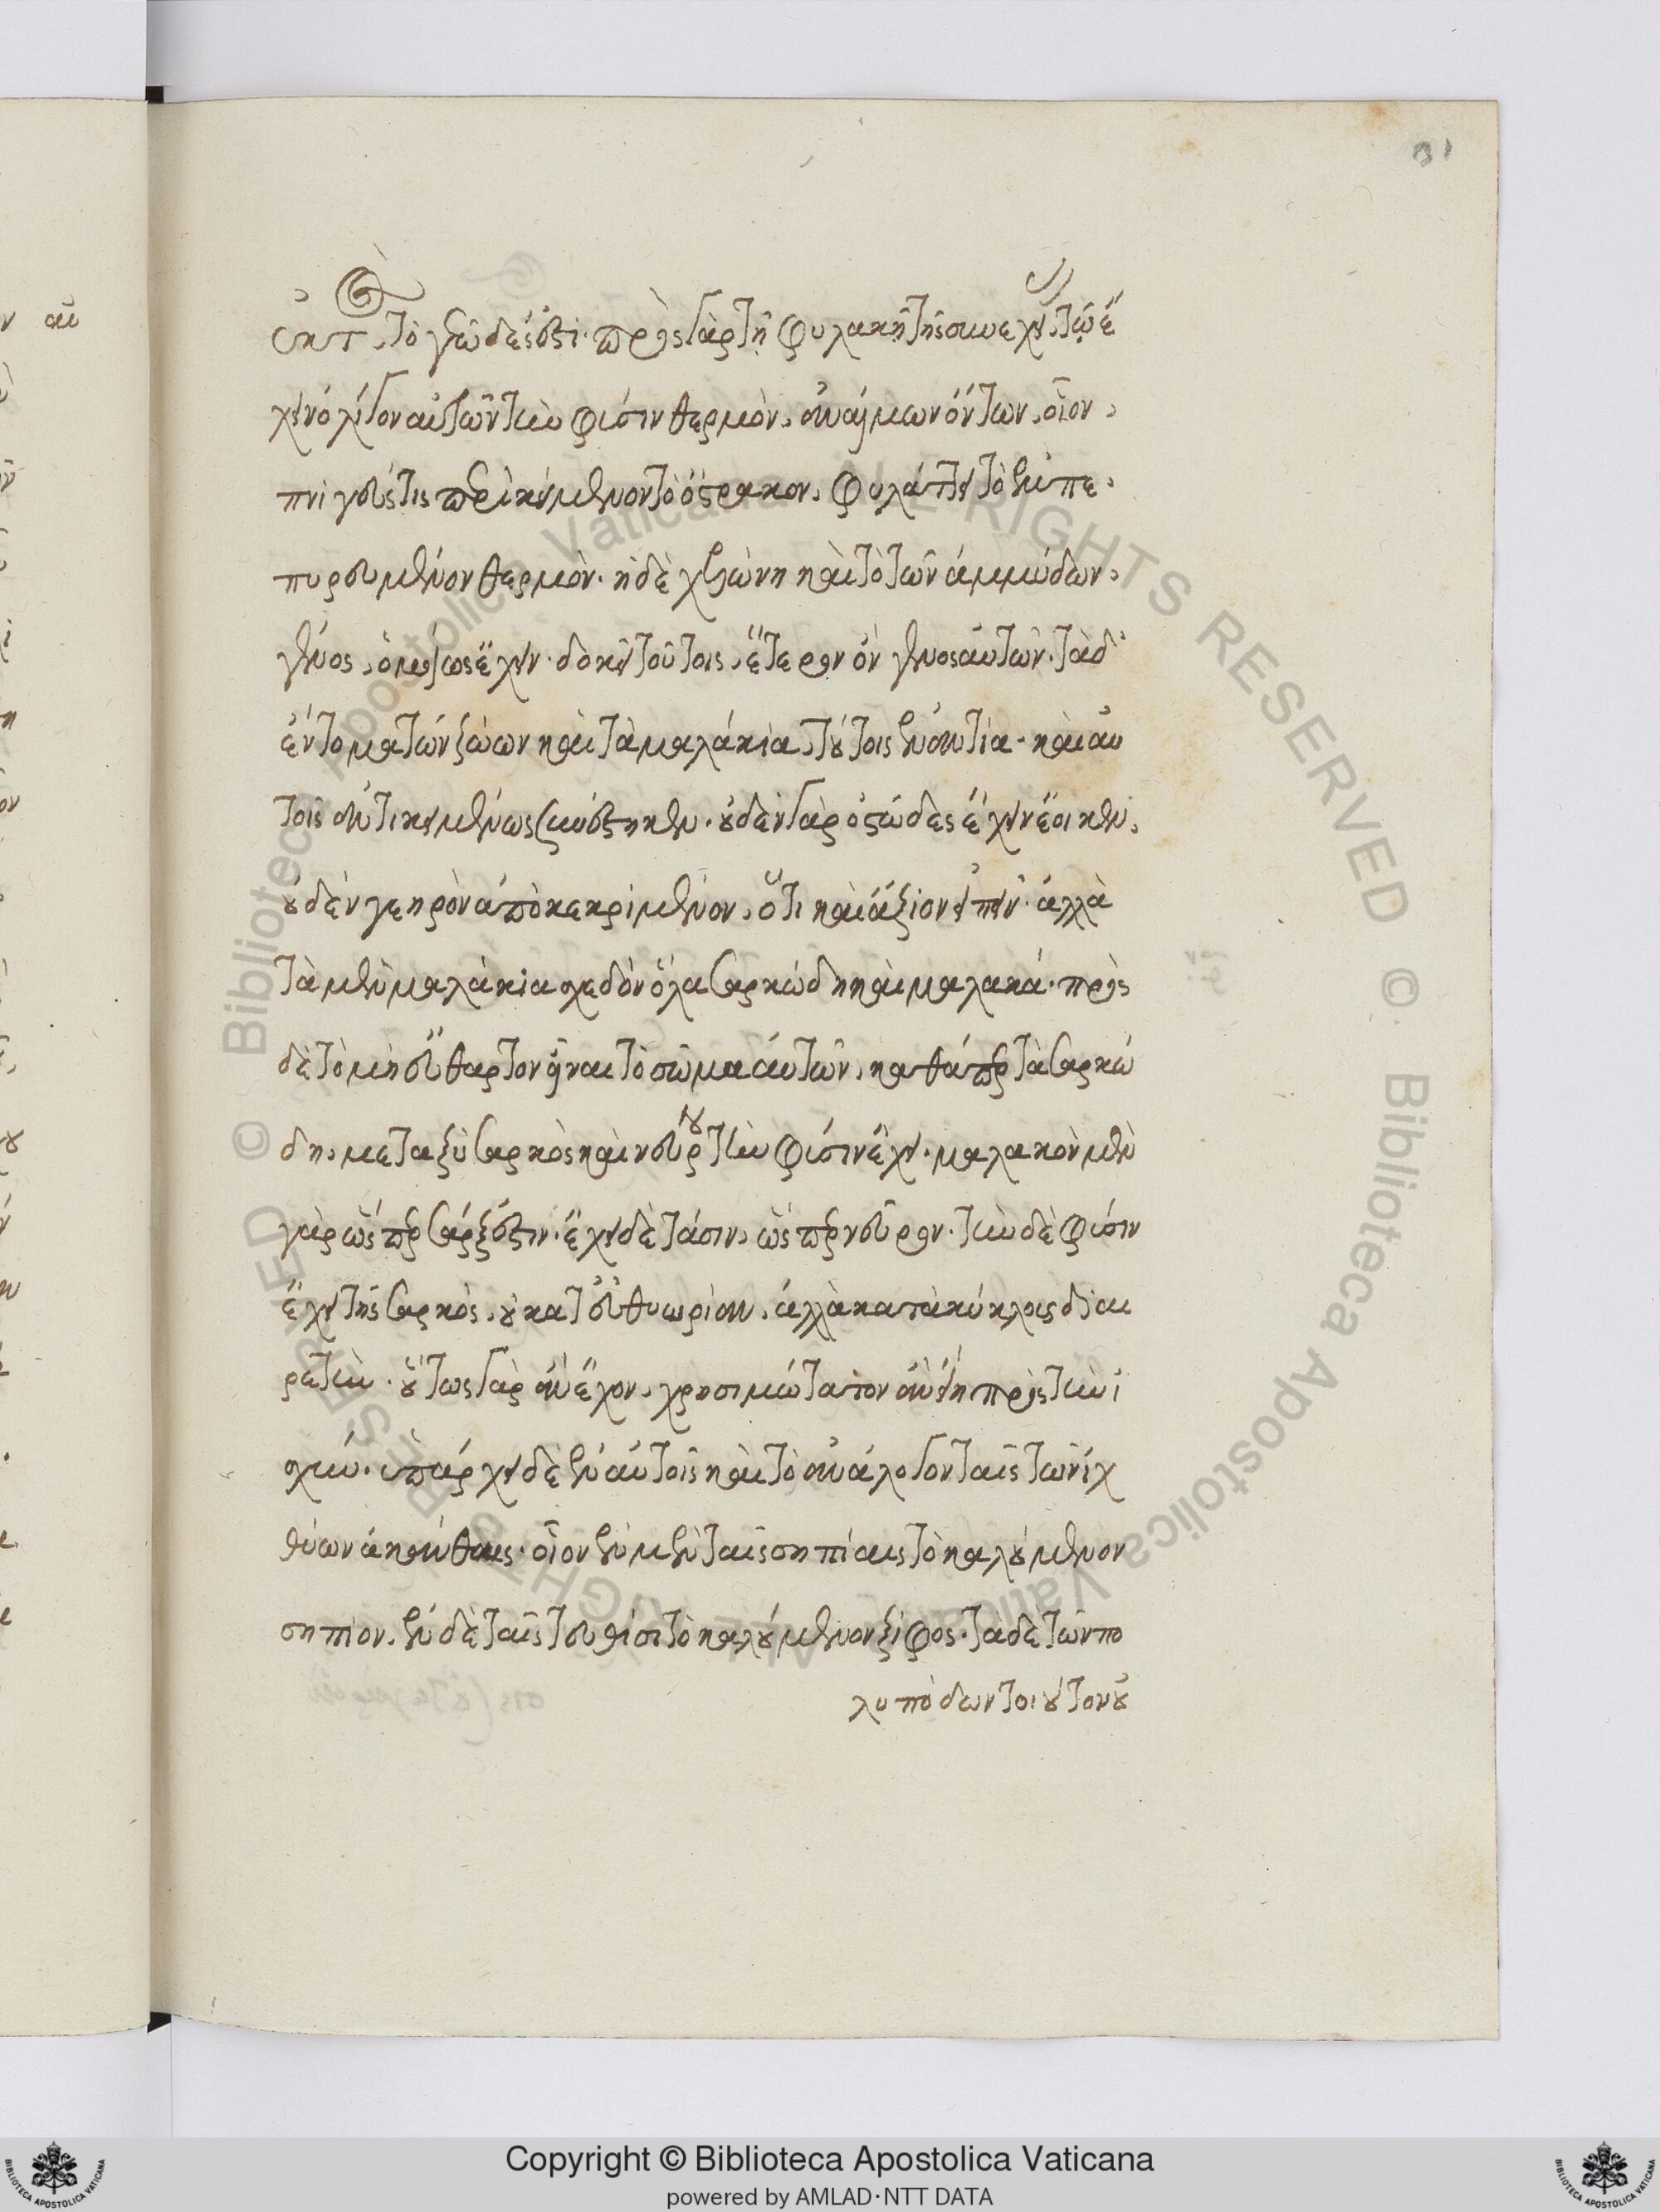 31
ἐκτ, τὸ γεῶδες ἐστί· πρὸς γὰρ τῇ φυλακῇ τῆς συνεχεῖ, τῷ ἔ
χειν ὀλίγον αὐτῶν τὴν φύσιν θερμὸν, ἀναίμων ὄντων, οἷον,
πνιγεύς τις περικείμενον τὸ ὄστρακον, φυλάττει τὸ ἐμπε
πυρευμένον θερμὸν· ἡ δὲ χελώνη καὶ τὸ τῶν ἀμμύδων,
γένος, ὁμοίως ἔχειν δοκεῖ τούτοις, ἕτερον ὂν γένος αὐτῶν· τὰ δ'
ἔντομα τῶν ζώων καὶ τὰ μαλάκια, τούτοις ἐναντία· καὶ αὐ
τοῖς ἀντικειμένως συνέστηκεν· οὐδὲν γὰρ ὀστῶδες ἔχειν ἔοικεν,
οὐδὲν γεηρὸν ἀποκεκριμένον, ὅτι καὶ ἄξιον εἰπεῖν· ἀλλὰ
τὰ μὲν μαλάκια σχεδὸν ὅλα σαρκώδη καὶ μαλακά· πρὸς
δὲ τὸ μὴ εὔθαρτον εἶναι τὸ σῶμα αὐτῶν, καθάπερ τὰ σαρκώ
δη, μεταξὺ σαρκὸς καὶ νεύρου τὴν φύσιν ἔχει· μαλακὸν μὲν
γὰρ ὥσπερ σάρξ ἐστιν· ἔχει δὲ τάσιν, ὥσπερ νεῦρον· τὴν δὲ φύσιν
ἔχει τῆς σαρκὸς, οὐ κατ' εὐθυωρίαν, ἀλλὰ κατὰ κύκλοις διαι
ρετὴν· οὕτως γὰρ ἂν ἔχον, χρησιμώτατον ἂν εἴη πρὸς τὴν ἰ
σχύν· ὑπάρχει δὲ ἐν αὐτοῖς καὶ τὸ ἀνάλογον ταῖς τῶν ἰχ
θύων ἀκάνθαις· οἷον ἐν μὲν ταῖς σηπίαις τὸ καλούμενον
σηπίον, ἐν δὲ ταῖς τευθίσι τὸ καλούμενον ξίφος· τὰ δὲ τῶν πο
λυπόδων τοιοῦτον οὐ
Copyright © Biblioteca Apostolica Vaticana
powered by AMLAD·NTT DATA